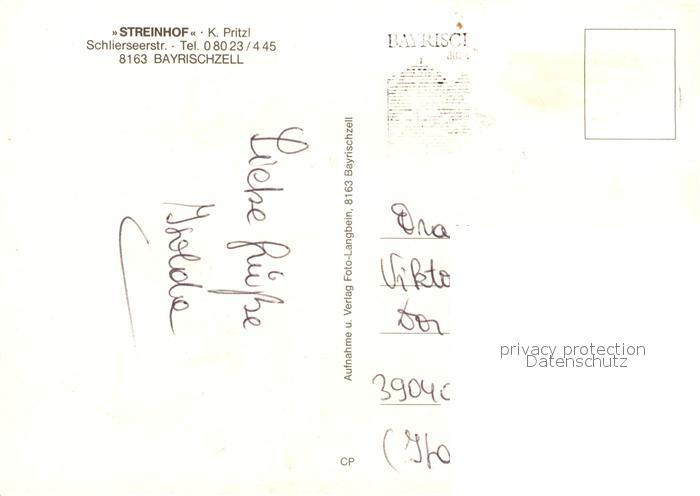 »STREINHOF« · K. Pritzl
Schlierseerstr. · Tel. 0 80 23 / 4 45
8163 BAYRISCHZELL
Liebe Grüße
Isolde
Aufnahme u. Verlag Foto-Langbein, 8163 Bayrischzell
CP
BAYRISCH
Dra
Vikto
Dor
39040
(Ita
privacy protection
Datenschutz